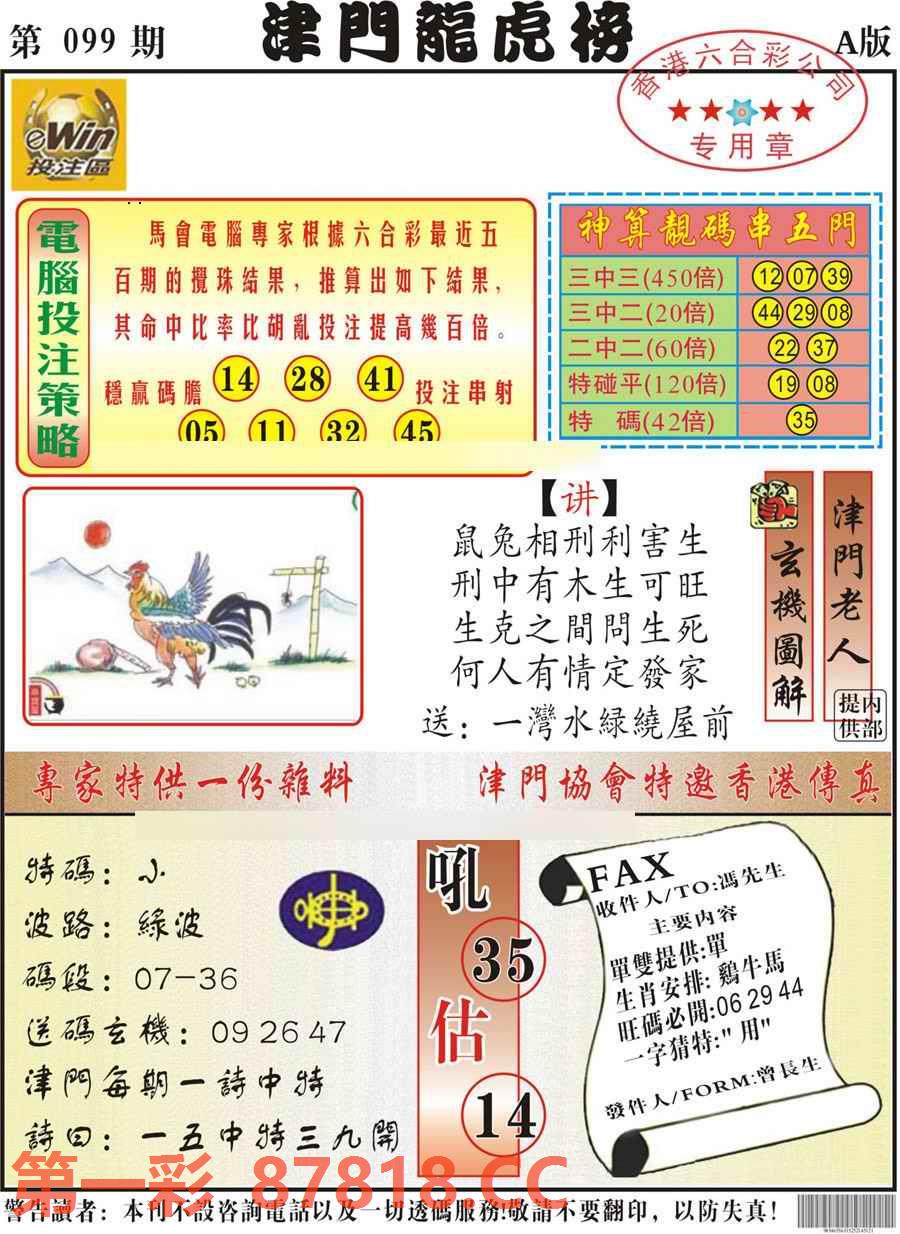 第 099 期
津門龍虎榜
A版
香港六合彩公司
专用章
eWin
投注區
電腦投注策略
馬會電腦專家根據六合彩最近五
百期的攪珠結果，推算出如下結果，
其命中比率比胡亂投注提高幾百倍。
穩贏碼膽 14 28 41 投注串射
05 11 32 45
神算靚碼串五門
三中三(450倍) 12 07 39
三中二(20倍) 44 29 08
二中二(60倍) 22 37
特碰平(120倍) 19 08
特 碼(42倍) 35
【讲】
鼠兔相刑利害生
刑中有木生可旺
生克之間問生死
何人有情定發家
送：一灣水緑繞屋前
玄機圖解
津門老人
内部提供
專家特供一份雜料
津門協會特邀香港傳真
特碼：小
波路：綠波
碼段：07-36
送碼玄機：09 26 47
津門每期一詩中特
詩曰：一五中特三九開
吼
35
估
14
FAX
收件人/TO:馮先生
主要内容
單雙提供:單
生肖安排: 鷄牛馬
旺碼必開:06 29 44
一字猜特:"用"
發件人/FORM:曾長生
第一彩 87818.CC
警告讀者：本刊不設咨詢電話以及一切透碼服務!敬請不要翻印，以防失真!